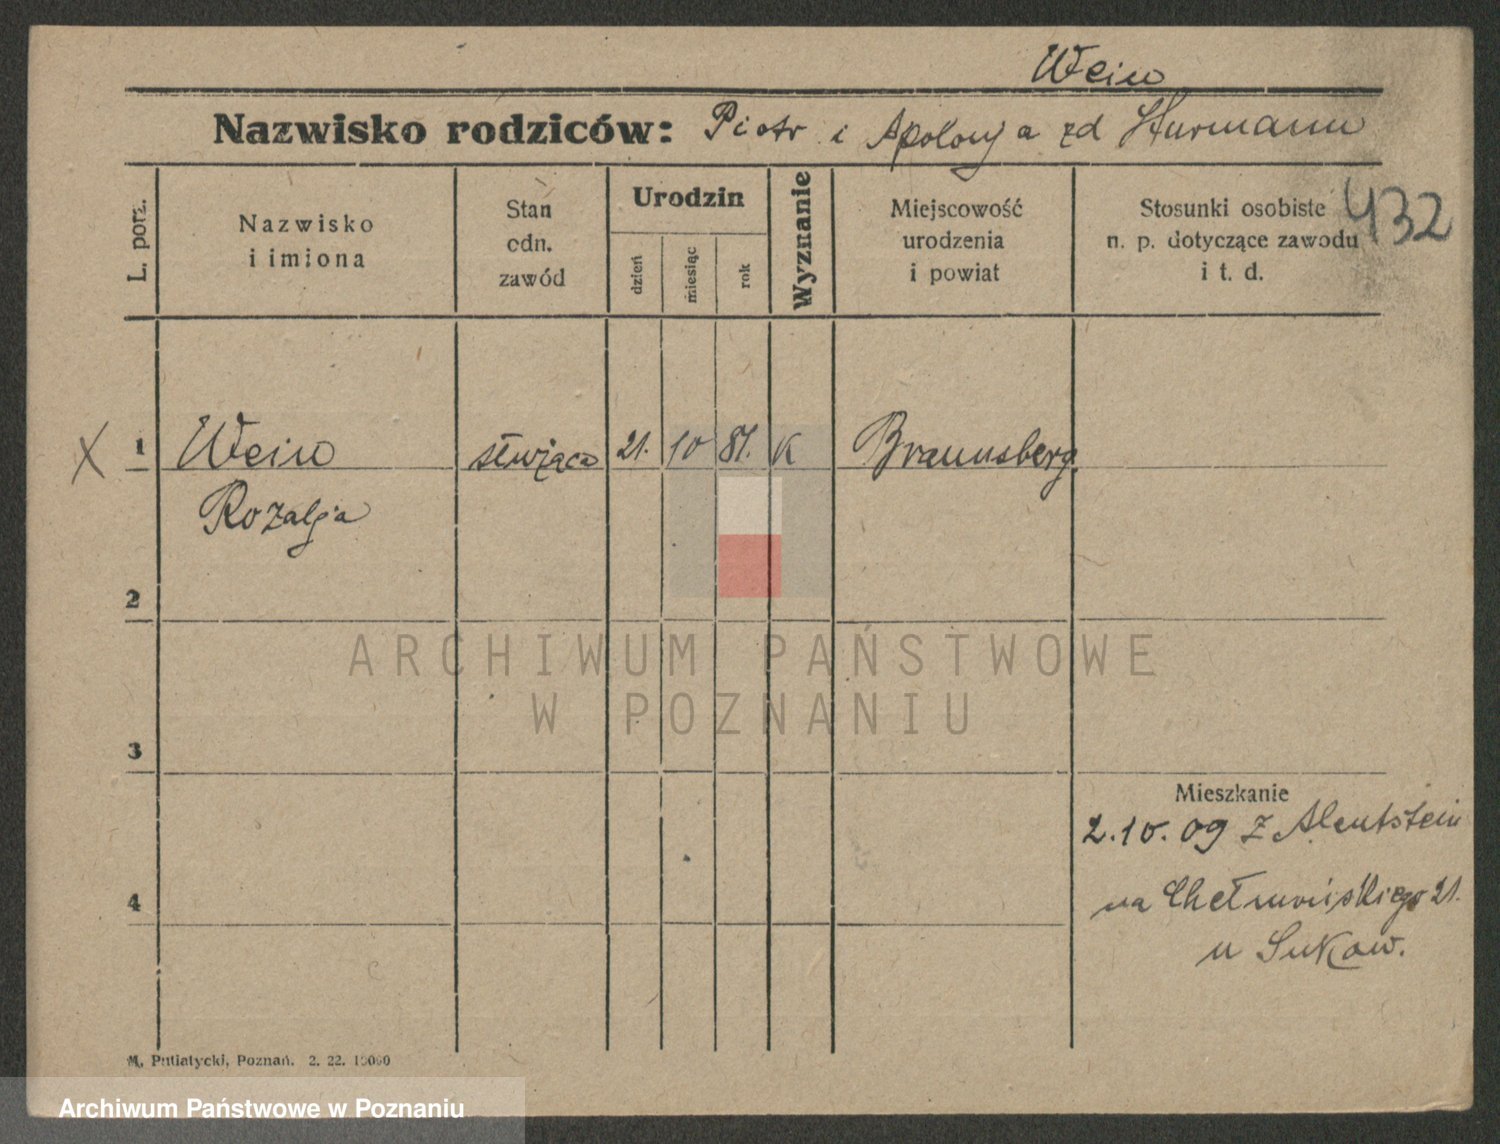 Wein
Nazwisko rodziców: Piotr i Apolonja zd Sturmann
L. porz.
Nazwisko
i imiona
Stan
cdn.
zawód
Urodzin
dzień
miesiąc
rok
Wyznanie
Miejscowość
urodzenia
i powiat
Stosunki osobiste
n. p. dotyczące zawodu
i t. d.
432
X 1 Wein służąca 21. 10 87. K Braunsberg
Rozalja
2
3
4
Mieszkanie
2.10.09 z Alentstein
na Chełmońskiego 21.
u Sukow.
M. Putiatycki, Poznań. 2. 22. 10000
ARCHIWUM PAŃSTWOWE
W POZNANIU
Archiwum Państwowe w Poznaniu